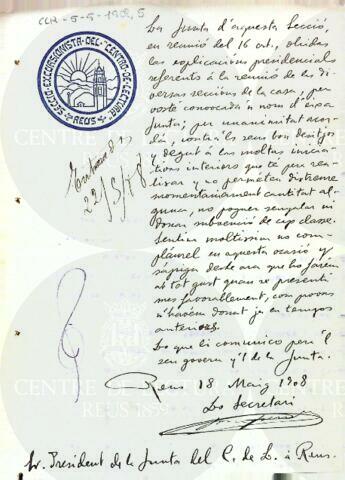 CLR-5-5-1908,5
SECCIÓ EXCURSIONISTA DEL "CENTRO DE LECTURA"
REUS
La Junta d'aquesta Secció,
en reunió del 16 cort., ohidas
las explicacions presidencials
referents á la reunió de las di-
versas seccions de la casa, per
vosté convocada á nom d'eixa
Junta; per unanimitat acor-
dá, contra'ls seus bons desitjos
y degut á las moltas inicia-
tivas interiors que té per rea-
lisar y no permeten distreure
momentaniament cantitat al-
guna, no poguer senyalar ni
donar subvenció de cap classe.
Sentim moltissim no com-
plaurel en aquesta ocasió y
sapiga desde ara que ho farém
ab tot gust quan se presenti
mes favorablement, com provas
n'havém donat ja en temps
anteriors.
Lo que li comunico pera'l
seu govern y'l de la Junta.
Reus 18 Maig 1908
Lo Secretari
Sr. President de la Junta del C. de L. á Reus.
22/5/08
CENTRE DE LECTURA
REUS 1859